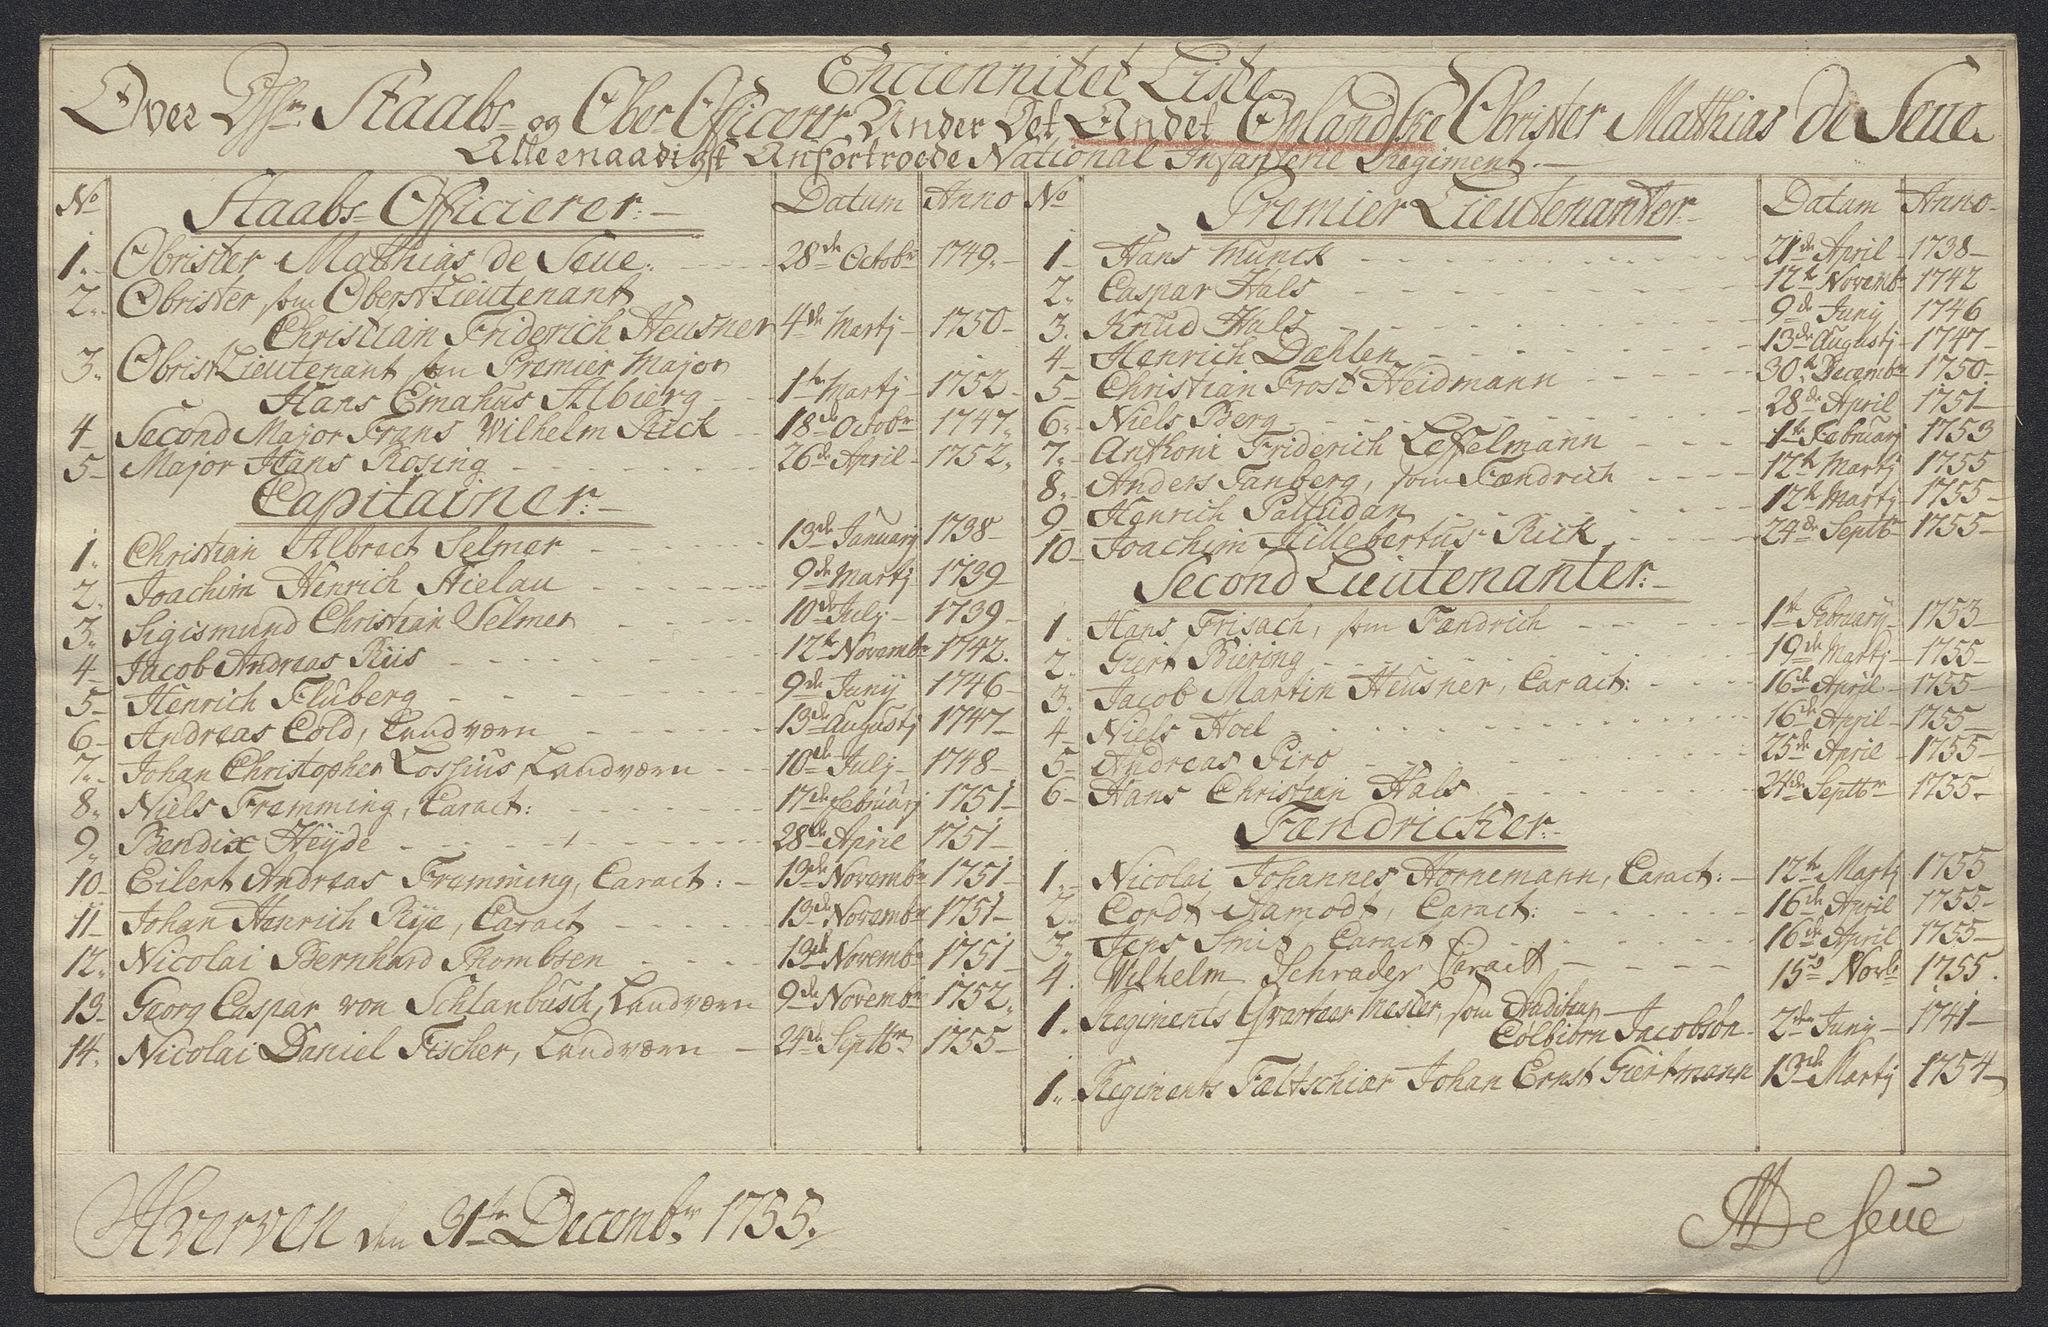 Enciennitet Liste
Over Dhr: Staabs- og Ober Officerer Under Det Andet Oplandske Obrister Mathias De Seue
Allernaadigst Anfortroede National Infanterie Regiment.
No Staabs-Officierer: Datum Anno
1. Obrister Mathias de Seue. 28de Octobr 1749.
2. Obrister, som OberstLieutenant
Christian Friderich Heusner 4de Martj 1750
3. ObristLieutenant som Premier Major
Hans Emahus Albierg 1te Martj 1752
4 Second Major Frans Wilhelm Rick 18de Octobr 1747.
5 Major Hans Rosing 26de April 1752.
Capitainer:
1. Christian Albrect Selmer 13de January 1738
2. Joachim Henrich Hielau 9de Martj 1739
3. Sigismund Christian Selmer 10de Julj 1739
4 Jacob Andreas Riis 12te Novembr 1742.
5 Henrich Fluberg 9de Junij 1746
6 Andreas Cold, Landværn 13de Augustj 1747
7. Johan Christopher Lossius, Landværn 10de Julj 1748
8. Niels Fremming, Caract: 17de Februarj 1751
9. Bendix Heyde 28de April 1751
10 Eilert Andreas Fremming, Caract: 13de Novembr 1751
11 Johan Henrich Rye, Caract 13de Novembr 1751
12. Nicolai Bernhard Thombsen 13de Novembr 1751
13 Georg Caspar von Schlanbusch, Landværn 9de Novembr 1752.
14. Nicolai Daniel Fischer, Landværn 24de Septbr 1755
No Premier Lieutenanter Datum Anno
1 Hans Munck 21de April 1738
2. Caspar Hals 12te Novembr 1742
3. Knud Hals 9de Junij 1746
4 Henrich Dæhlen 13de Augustj 1747
5 Christian Frost Heidmann 30te Decembr 1750
6. Niels Berg 28de April 1751
7. Anthoni Friderich Leffelmann 1te Februarj 1753
8. Anders Tanberg, som Fændrich 12te Martj 1755
9 Henrich Palludan 12te Martj 1755
10 Joachim Hillebertus Rick 24de Septbr 1755
Second Lieutenanter:
1. Hans Frisach, som Fændrich 1te February 1753
2. Giert Biering 19de Martj 1755
3. Jacob Martin Heusner, Caract: 16de April 1755
4 Niels Hoel 16de April 1755
5 Andreas Piro 25de April 1755
6 Hans Christian Hals 24de Septbr 1755.
Fændricker
1. Nicolai Johannes Hornemann, Caract: 12te Martj 1755
2. Cordt Stamodt, Caract: 16de April 1755
3. Jens Smit Caract 16de April 1755
4. Wilhelm Schrader Caract 15de Novb 1755.
1. Regiments Qvarteer Mester, som Auditeur
Colbiørn Jacobsøn 2den Junij 1741
1. Regiments Feltschiær Johan Ernst Giertmann 13de Martij 1754
Hverven den 31te Decembr. 1755.
MDeSeue